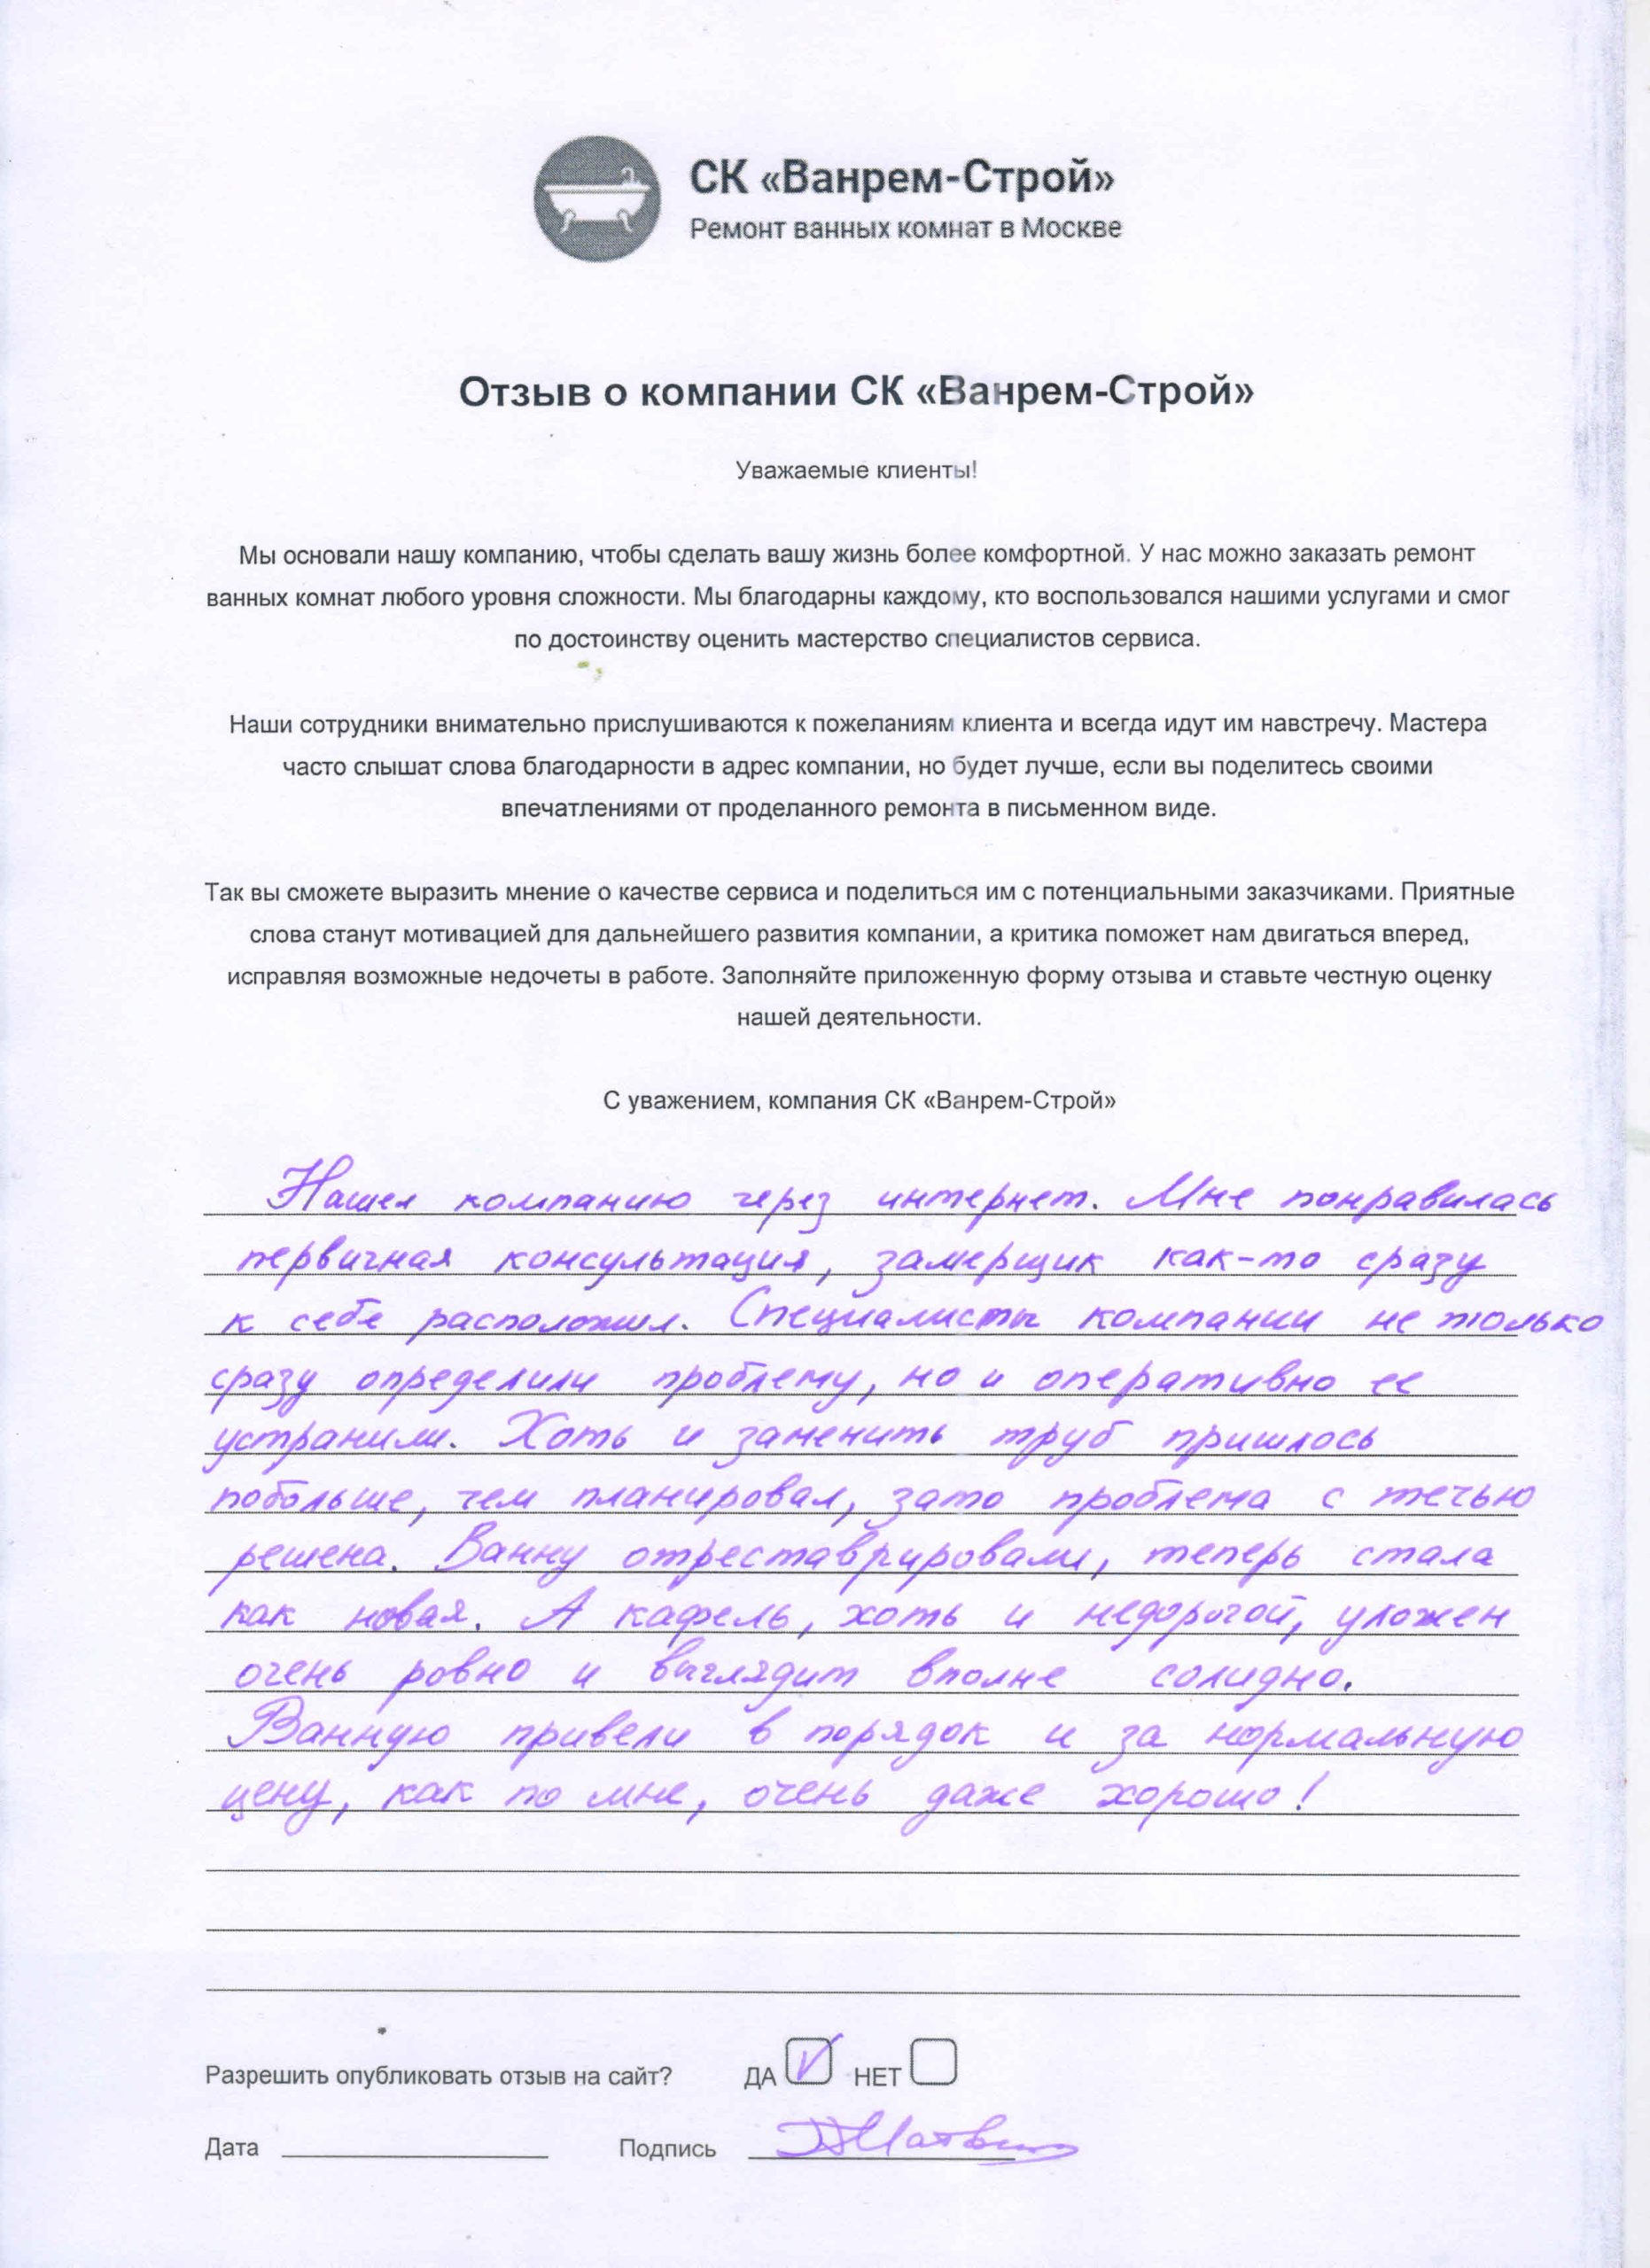 СК «Ванрем-Строй»
Ремонт ванных комнат в Москве
Отзыв о компании СК «Ванрем-Строй»
Уважаемые клиенты!
Мы основали нашу компанию, чтобы сделать вашу жизнь более комфортной. У нас можно заказать ремонт
ванных комнат любого уровня сложности. Мы благодарны каждому, кто воспользовался нашими услугами и смог
по достоинству оценить мастерство специалистов сервиса.
Наши сотрудники внимательно прислушиваются к пожеланиям клиента и всегда идут им навстречу. Мастера
часто слышат слова благодарности в адрес компании, но будет лучше, если вы поделитесь своими
впечатлениями от проделанного ремонта в письменном виде.
Так вы сможете выразить мнение о качестве сервиса и поделиться им с потенциальными заказчиками. Приятные
слова станут мотивацией для дальнейшего развития компании, а критика поможет нам двигаться вперед,
исправляя возможные недочеты в работе. Заполняйте приложенную форму отзыва и ставьте честную оценку
нашей деятельности.
С уважением, компания СК «Ванрем-Строй»
Нашел компанию через интернет. Мне понравилась
первичная консультация, замерщик как-то сразу
к себе расположил. Специалисты компании не только
сразу определили проблему, но и оперативно ее
устранили. Хоть и заменить труб пришлось
побольше, чем планировал, зато проблема с течью
решена. Ванну отреставрировали, теперь стала
как новая. А кафель, хоть и недорогой, уложен
очень ровно и выглядит вполне солидно.
Ванную привели в порядок и за нормальную
цену, как по мне, очень даже хорошо!
Разрешить опубликовать отзыв на сайт? ДА НЕТ
Дата Подпись